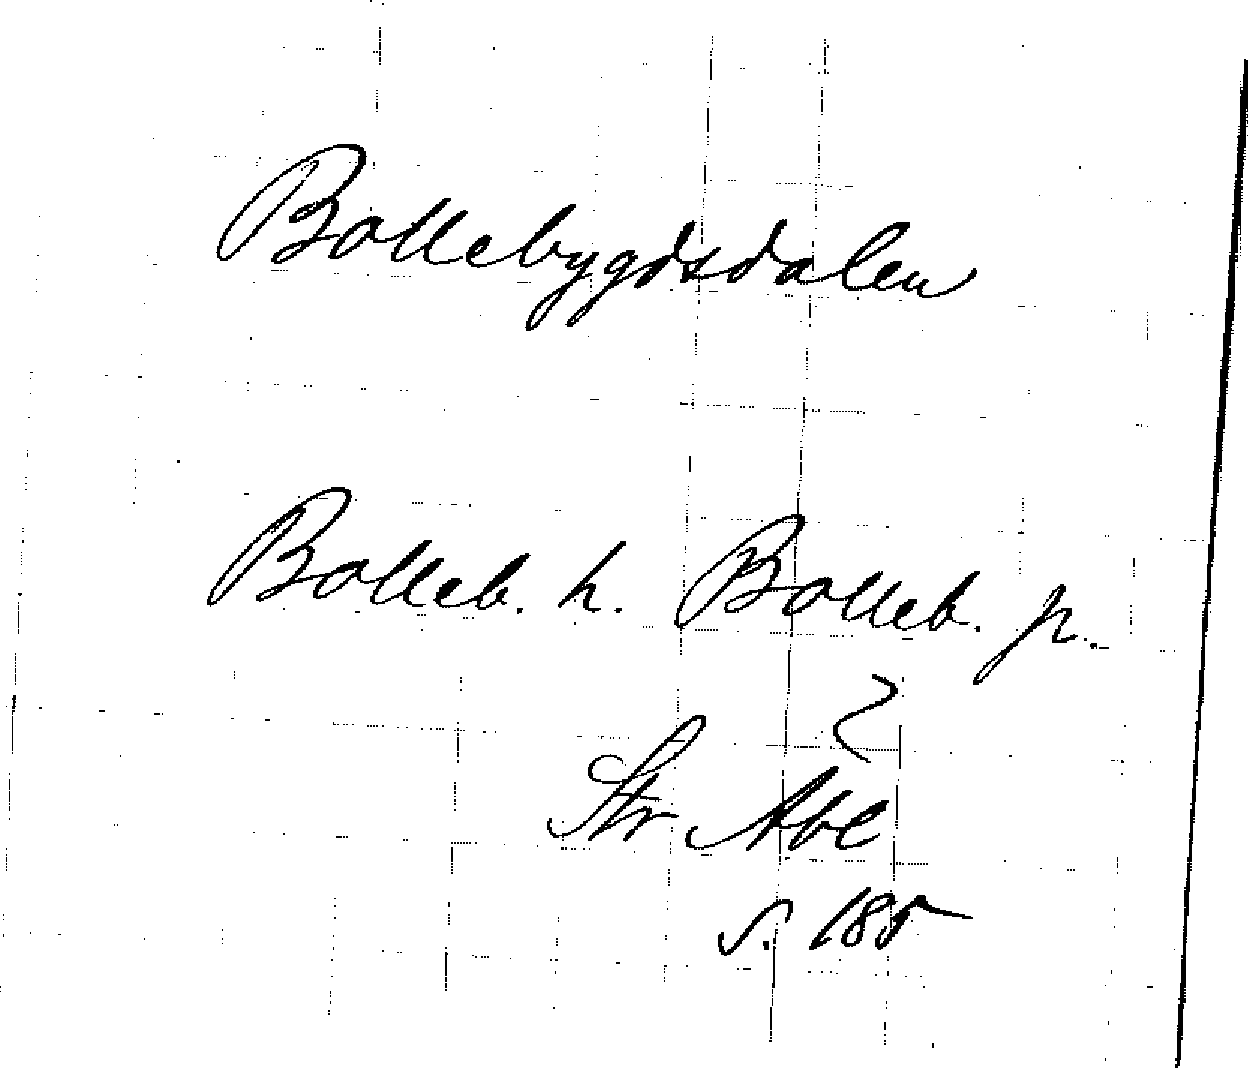 Bollebygdsdalen
Bolleb. h. Bolleb. p.
Str Abl
s. 185